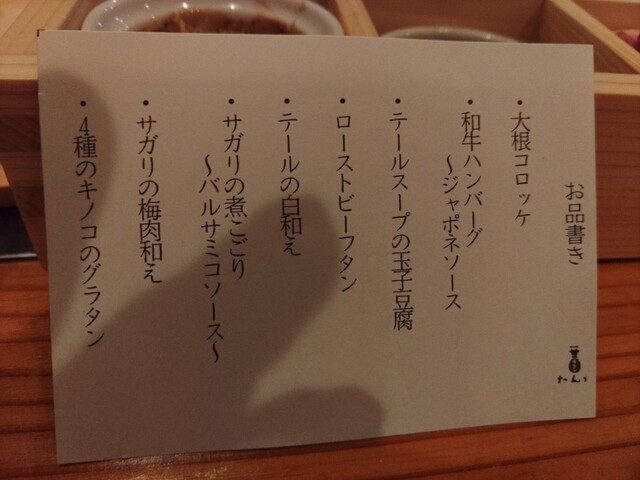 お品書き
・大根コロッケ
・和牛ハンバーグ
～ジャポネソース
・テールスープの玉子豆腐
・ローストビーフタン
・テールの白和え
・サガリの煮こごり
～バルサミコソース～
・サガリの梅肉和え
・4種のキノコのグラタン